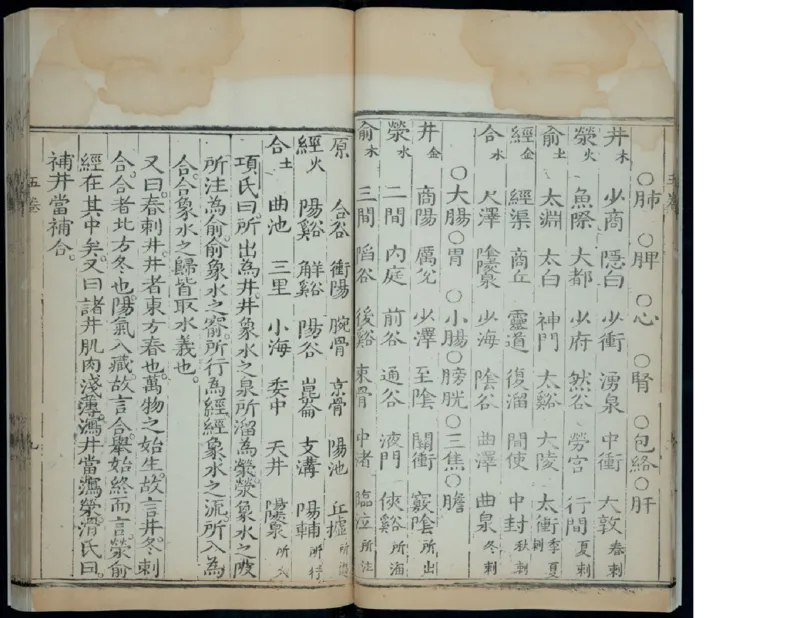 五卷
○肺 ○脾 ○心 ○腎 ○包絡 ○肝
井木 少商 隱白 少衝 湧泉 中衝 大敦 春刺
滎火 魚際 大都 少府 然谷 勞宮 行間 夏刺
俞土 太淵 太白 神門 太谿 大陵 太衝 季夏刺
經金 經渠 商丘 靈道 復溜 間使 中封 秋刺
合水 尺澤 陰陵泉 少海 陰谷 曲澤 曲泉 冬刺
○大腸 ○胃 ○小腸 ○膀胱 ○三焦 ○膽
井金 商陽 厲兊 少澤 至陰 關衝 竅陰 所出
滎水 二間 內庭 前谷 通谷 液門 俠谿 所溜
俞木 三間 陷谷 後谿 束骨 中渚 臨泣 所注
原 合谷 衝陽 腕骨 京骨 陽池 丘墟 所過
經火 陽谿 解谿 陽谷 崑崙 支溝 陽輔 所行
合土 曲池 三里 小海 委中 天井 陽陵泉 所入
項氏曰所出為井井象水之泉所溜為滎滎象水之陂
所注為俞俞象水之窬所行為經經象水之流所入為
合合象水之歸皆取水義也
又曰春刺井井者東方春也萬物之始生故言井冬刺
合合者北方冬也陽氣入藏故言合舉始終而言滎俞
經在其中矣又曰諸井肌肉淺薄瀉井當瀉滎滑氏曰
補井當補合
五卷
九